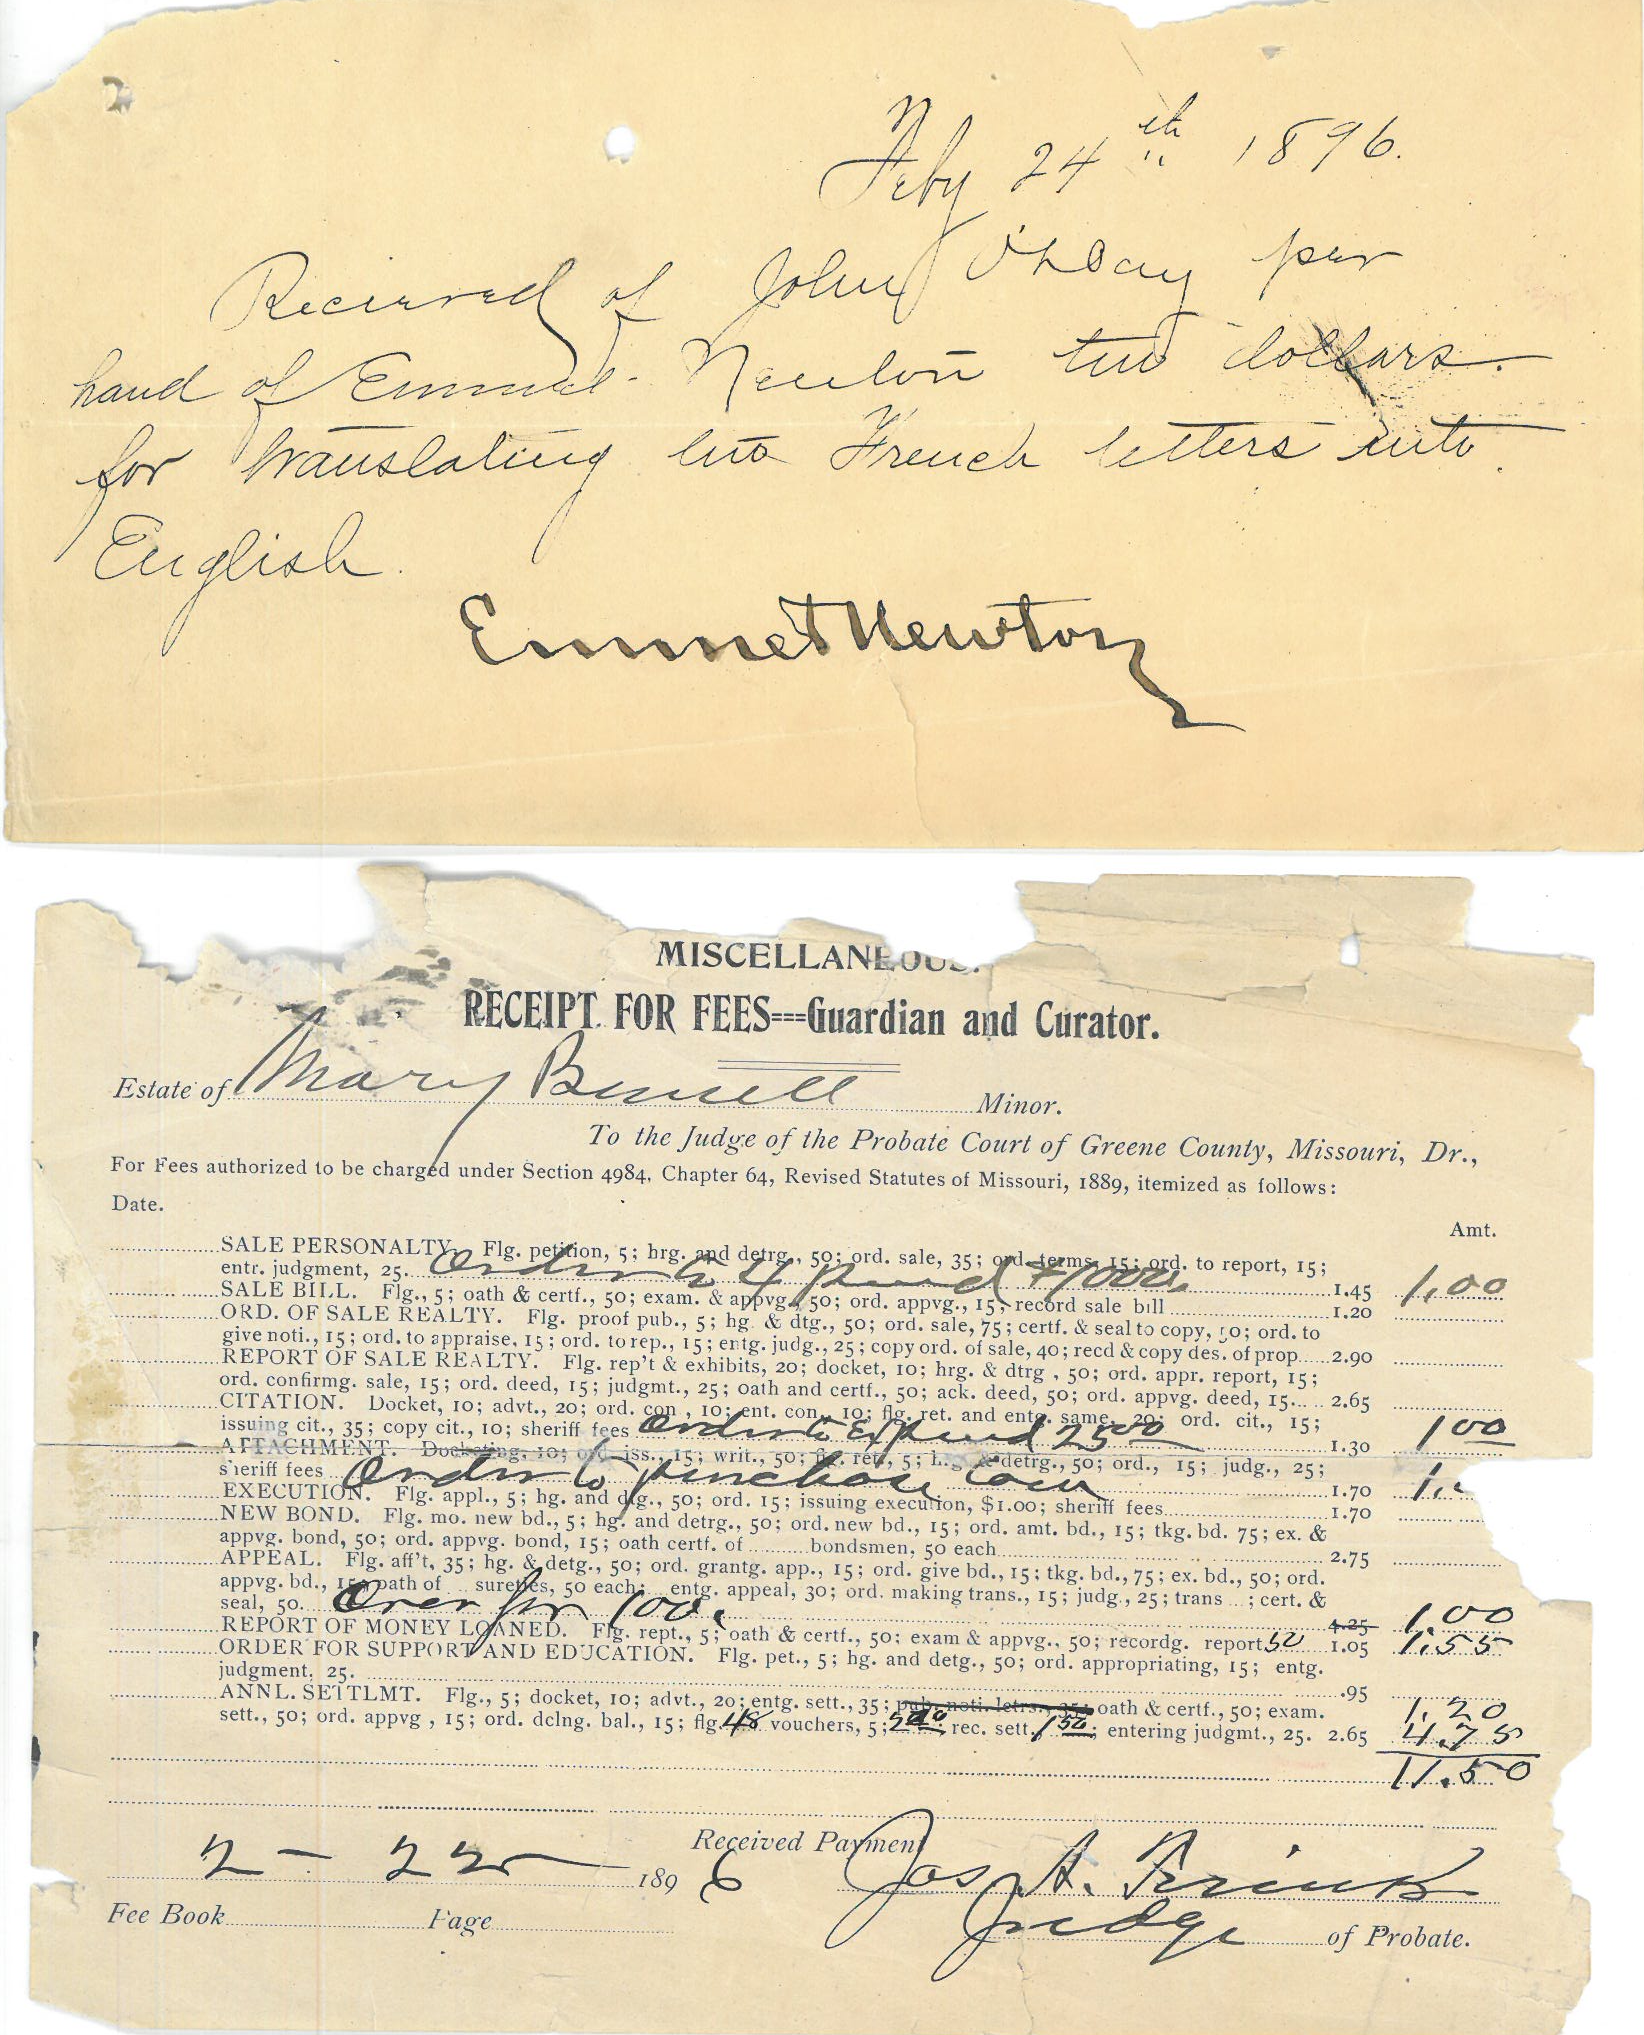 Feby 24th 1896.
Recieved of John O'Day per
hand of Emmet Newton two dollars.
for translating two French letters into
English.
Emmet Newton
MISCELLANEOUS.
RECEIPT FOR FEES===Guardian and Curator.
Estate of Mary Minor.
To the Judge of the Probate Court of Greene County, Missouri, Dr.,
For Fees authorized to be charged under Section 4984, Chapter 64, Revised Statutes of Missouri, 1889, itemized as follows:
Date.
Amt.
SALE PERSONALTY. Flg. petition, 5; hrg. and detrg., 50; ord. sale, 35; ord. terms, 15; ord. to report, 15;
entr. judgment, 25. Order to 1.45 1.00
SALE BILL. Flg., 5; oath & certf., 50; exam. & appvg., 50; ord. appvg., 15; record sale bill 1.20
ORD. OF SALE REALTY. Flg. proof pub., 5; hg. & dtg., 50; ord. sale, 75; certf. & seal to copy, 50; ord. to
give noti., 15; ord. to appraise, 15; ord. to rep., 15; entg. judg., 25; copy ord. of sale, 40; recd & copy des. of prop. 2.90
REPORT OF SALE REALTY. Flg. rep't & exhibits, 20; docket, 10; hrg. & dtrg., 50; ord. appr. report, 15;
ord. confirmg. sale, 15; ord. deed, 15; judgmt., 25; oath and certf., 50; ack. deed, 50; ord. appvg. deed, 15. 2.65
CITATION. Docket, 10; advt., 20; ord. con., 10; ent. con., 10; flg. ret. and entg. same, 20; ord. cit., 15;
issuing cit., 35; copy cit., 10; sheriff fees Order to Expend 2500 1.30 1 00
ATTACHMENT. Docketing, 10; ord. iss., 15; writ., 50; flg. ret., 5; hrg. & detrg., 50; ord., 15; judg., 25;
sheriff fees Order to purchase 1.70 1.
EXECUTION. Flg. appl., 5; hg. and dtg., 50; ord. 15; issuing execution, $1.00; sheriff fees 1.70
NEW BOND. Flg. mo. new bd., 5; hg. and detrg., 50; ord. new bd., 15; ord. amt. bd., 15; tkg. bd. 75; ex. &
appvg. bond, 50; ord. appvg. bond, 15; oath certf. of bondsmen, 50 each 2.75
APPEAL. Flg. aff't, 35; hg. & detg., 50; ord. grantg. app., 15; ord. give bd., 15; tkg. bd., 75; ex. bd., 50; ord.
appvg. bd., 15; oath of sureties, 50 each; entg. appeal, 30; ord. making trans., 15; judg., 25; trans ; cert. &
seal, 50. for 100. 4.25 1.00
REPORT OF MONEY LOANED. Flg. rept., 5; oath & certf., 50; exam & appvg., 50; recordg. report 50 1.05 1.55
ORDER FOR SUPPORT AND EDUCATION. Flg. pet., 5; hg. and detg., 50; ord. appropriating, 15; entg.
judgment, 25. .95
ANNL. SETTLMT. Flg., 5; docket, 10; advt., 20; entg. sett., 35; pub. noti. letrs., 35; oath & certf., 50; exam. 1.20
sett., 50; ord. appvg., 15; ord. dclng. bal., 15; flg. 48 vouchers, 5; rec. sett. 150; entering judgmt., 25. 2.65 4.75
11.50
Received Payment
2 - 22 1896 Jos. A.
Judge of Probate.
Fee Book Page